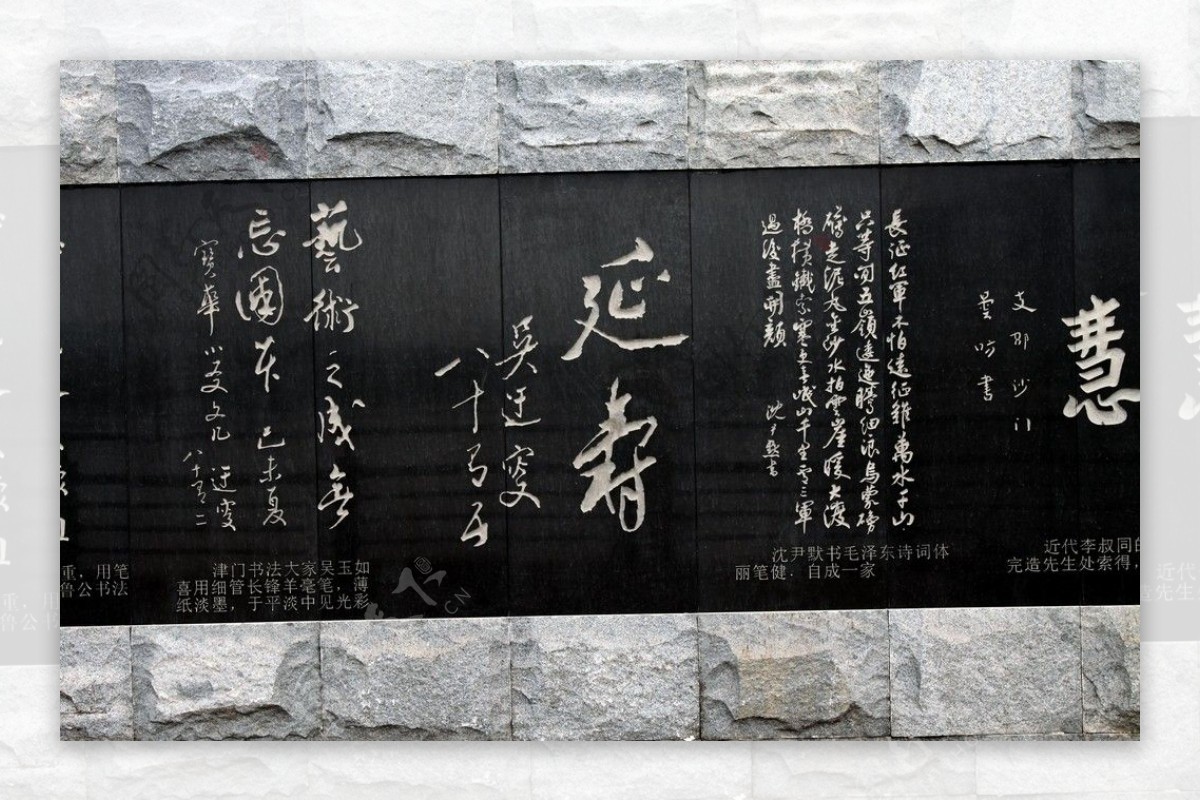 慧
支那沙门
曇昉書
長征紅軍不怕遠征難萬水千山
只等閒五嶺逶迤騰細浪烏蒙磅
礴走泥丸金沙水拍雲崖暖大渡
橋橫鐵索寒更喜岷山千里雪三軍
過後盡開顏 沈尹默書
延壽
吳迂叟
八十有五
藝術之成無
忘國本 己未夏
寶華小友文几 迂叟
八十有二
近代李叔同的
完造先生处索得,
沈尹默书毛泽东诗词体
丽笔健.自成一家
津门书法大家吴玉如
喜用细管长羊锋笔.薄
纸淡墨,于平淡中见光彩
重,用笔
鲁公书法